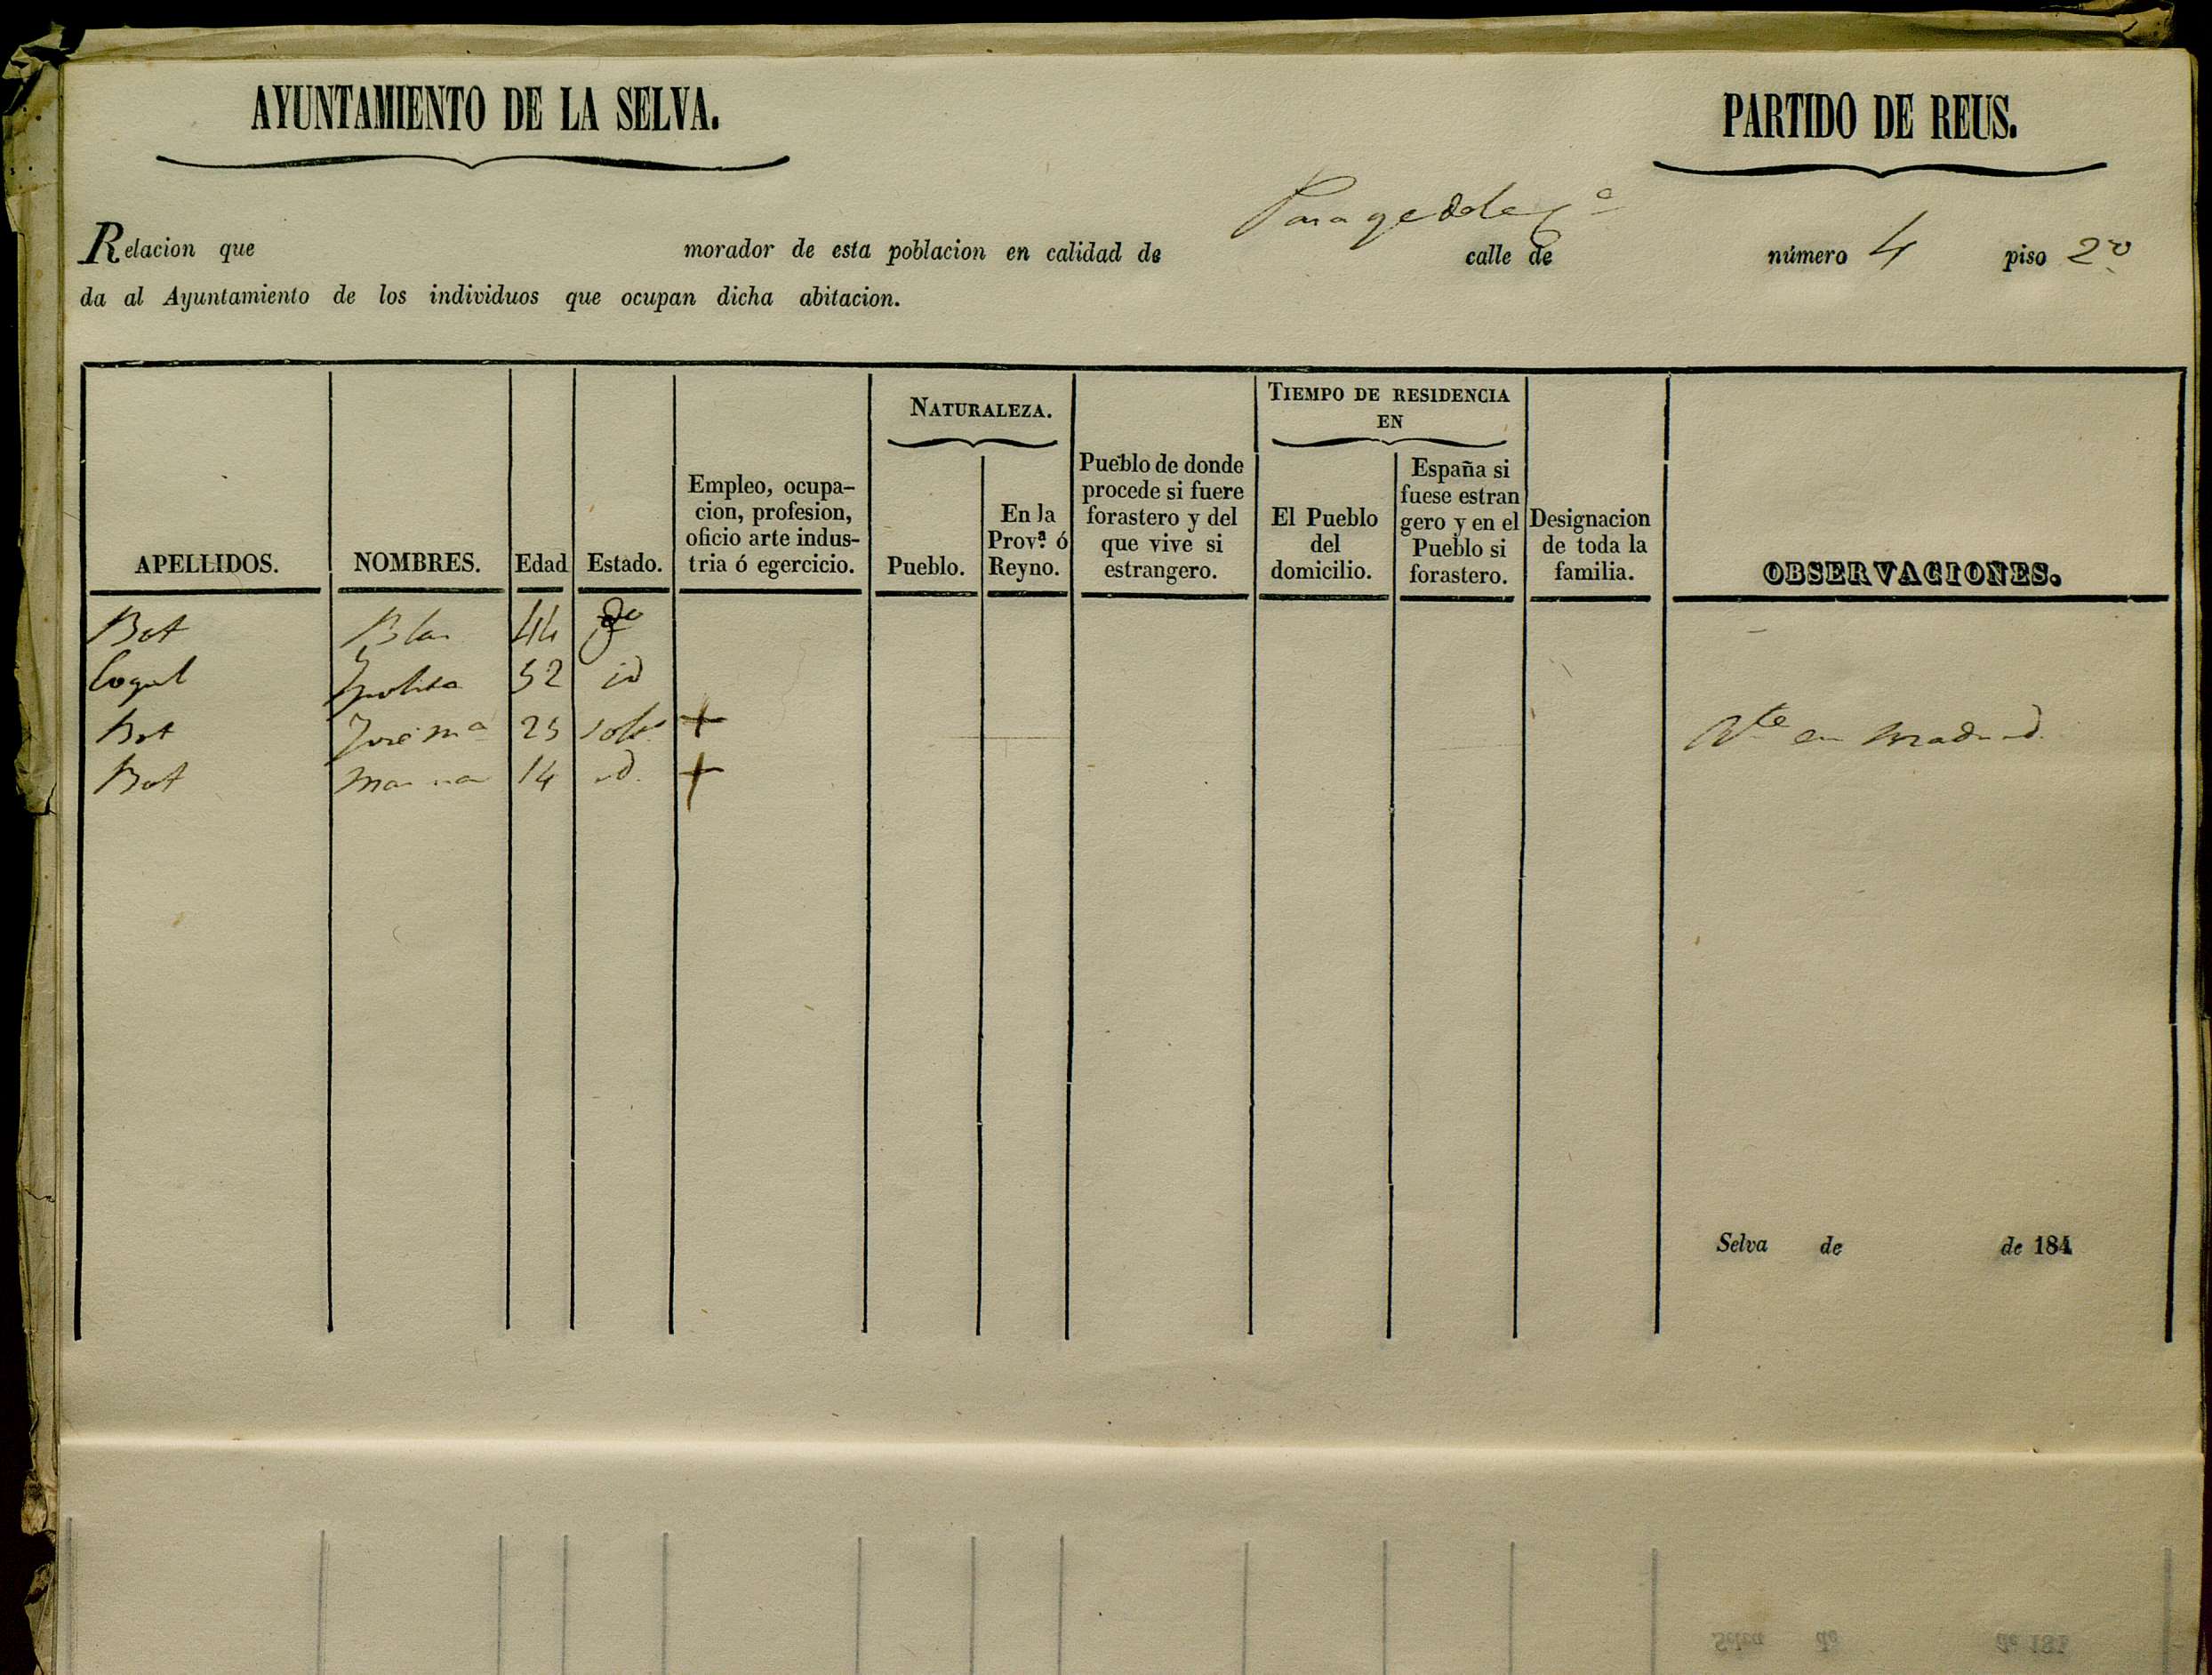 AYUNTAMIENTO DE LA SELVA.
PARTIDO DE REUS.
Relacion que morador de esta poblacion en calidad de calle de número 4 piso 2º
da al Ayuntamiento de los individuos que ocupan dicha abitacion.
APELLIDOS. NOMBRES. Edad Estado. Empleo, ocupa-
cion, profesion,
oficio arte indus-
tria ó egercicio.
NATURALEZA.
Pueblo. En la
Prov.ª ó
Reyno.
Pueblo de donde
procede si fuere
forastero y del
que vive si
estrangero.
TIEMPO DE RESIDENCIA
EN
El Pueblo
del
domicilio.
España si
fuese estran
gero y en el
Pueblo si
forastero.
Designacion
de toda la
familia.
OBSERVACIONES.
Bot Blas 44
Ypolita 52 id
Bot José Mª 25 solt. + Rte en Madrid.
Bot 14 id. +
Selva de de 184